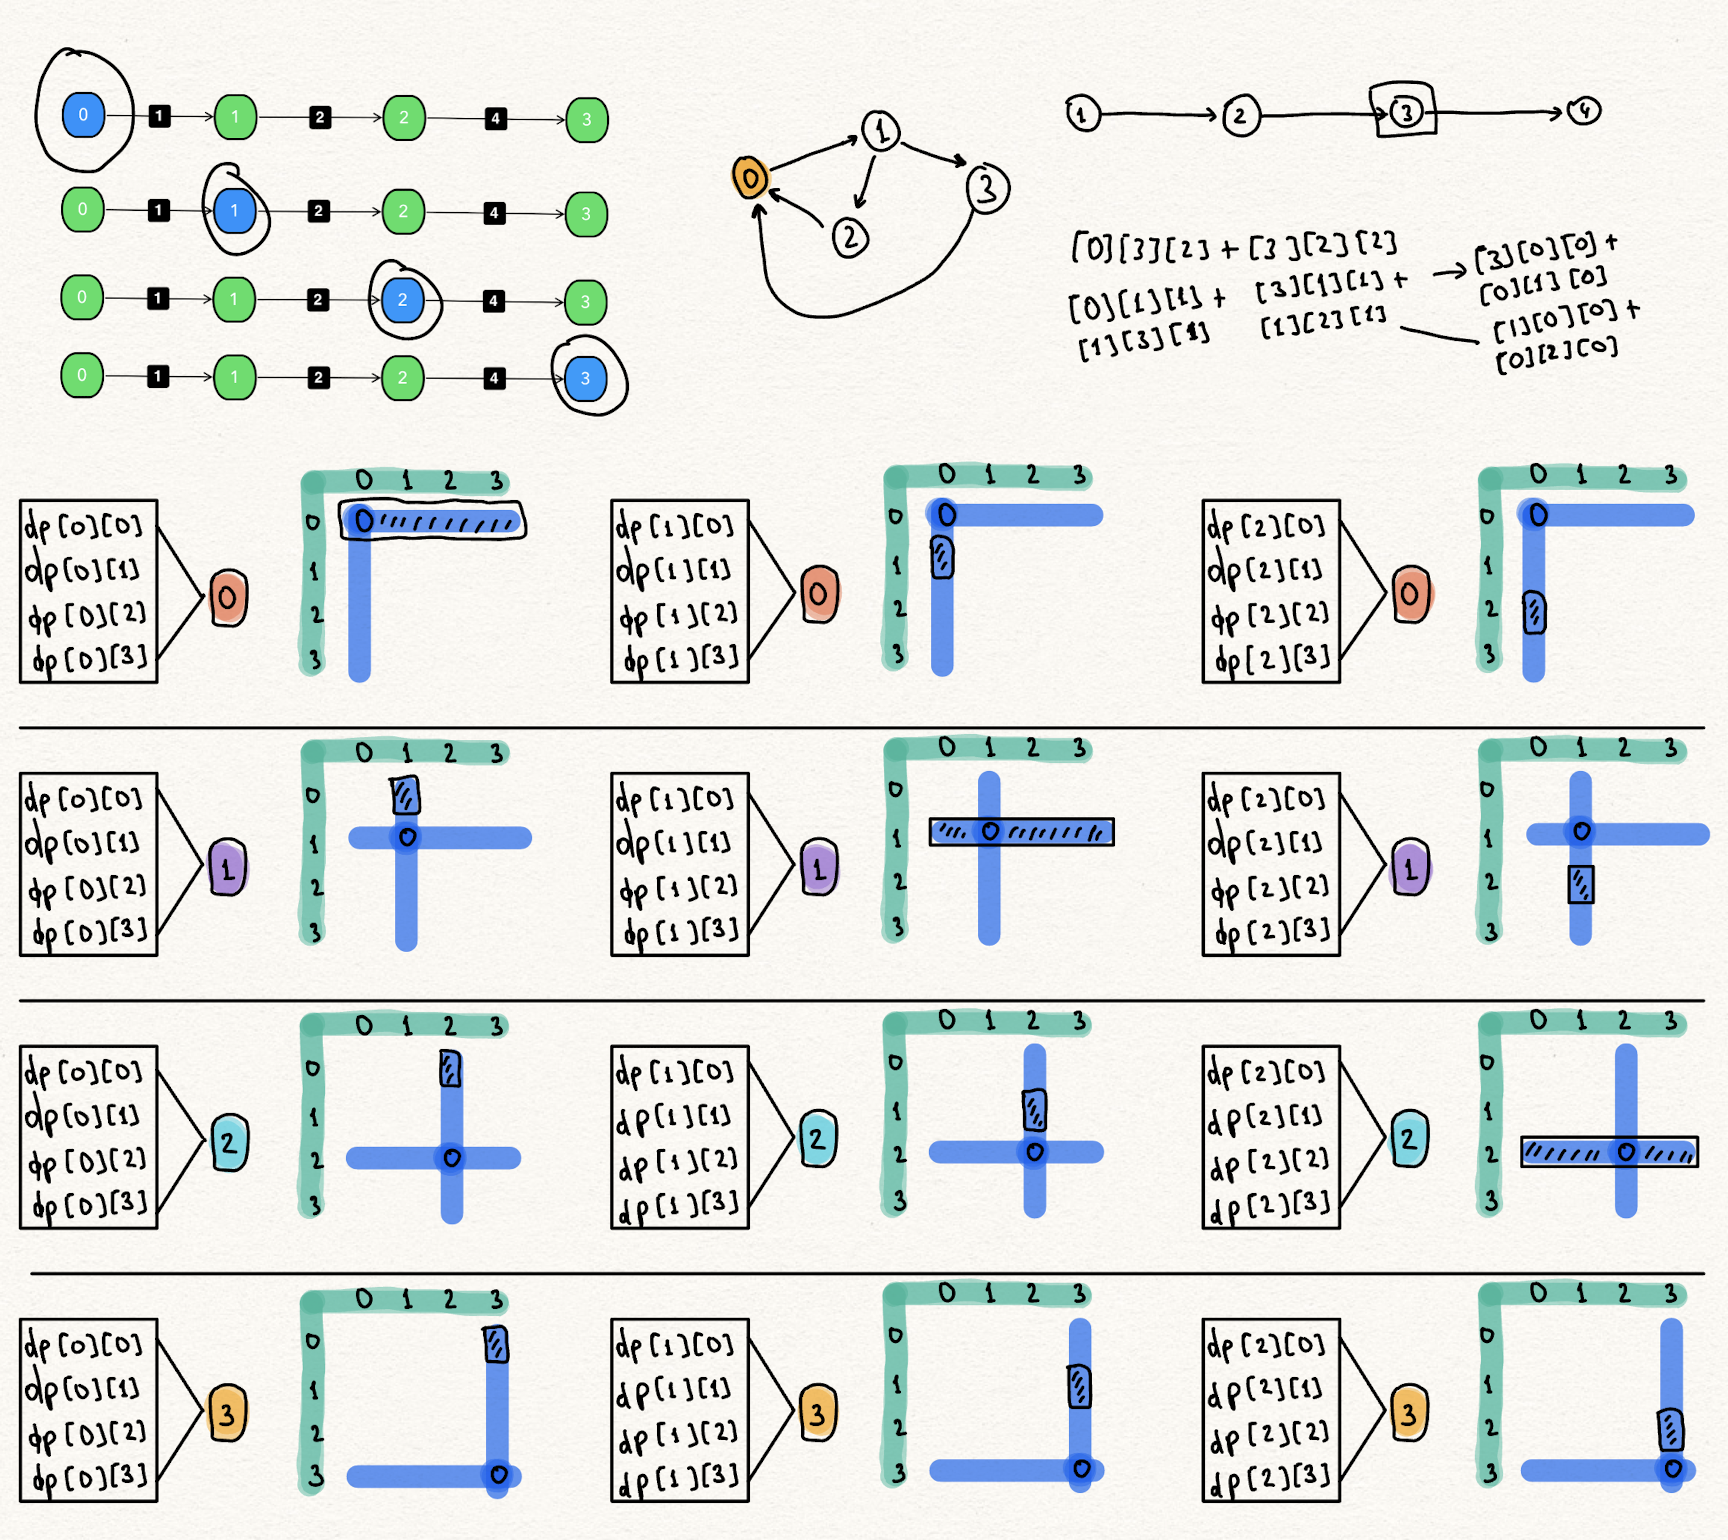 0 1 1 2 2 4 3
0 1 1 2 2 4 3
0 1 1 2 2 4 3
0 1 1 2 2 4 3
1
0
3
2
1 2 3 4
[0][3][2] + [3][2][2]
[0][1][1] + [3][1][1] +
[1][3][1] [1][2][1]
[3][0][0] +
[0][1][0]
[1][0][0] +
[0][2][0]
dp[0][0]
dp[0][1]
dp[0][2]
dp[0][3]
0
0 1 2 3
0 0
1
2
3
dp[1][0]
dp[1][1]
dp[1][2]
dp[1][3]
0
0 1 2 3
0 0
1
2
3
dp[2][0]
dp[2][1]
dp[2][2]
dp[2][3]
0
0 1 2 3
0 0
1
2
3
dp[0][0]
dp[0][1]
dp[0][2]
dp[0][3]
1
0 1 2 3
0
1 0
2
3
dp[1][0]
dp[1][1]
dp[1][2]
dp[1][3]
1
0 1 2 3
0
1 0
2
3
dp[2][0]
dp[2][1]
dp[2][2]
dp[2][3]
1
0 1 2 3
0
1 0
2
3
dp[0][0]
dp[0][1]
dp[0][2]
dp[0][3]
2
0 1 2 3
0
1
2 0
3
dp[1][0]
dp[1][1]
dp[1][2]
dp[1][3]
2
0 1 2 3
0
1
2 0
3
dp[2][0]
dp[2][1]
dp[2][2]
dp[2][3]
2
0 1 2 3
0
1
2 0
3
dp[0][0]
dp[0][1]
dp[0][2]
dp[0][3]
3
0 1 2 3
0
1
2
3 0
dp[1][0]
dp[1][1]
dp[1][2]
dp[1][3]
3
0 1 2 3
0
1
2
3 0
dp[2][0]
dp[2][1]
dp[2][2]
dp[2][3]
3
0 1 2 3
0
1
2
3 0